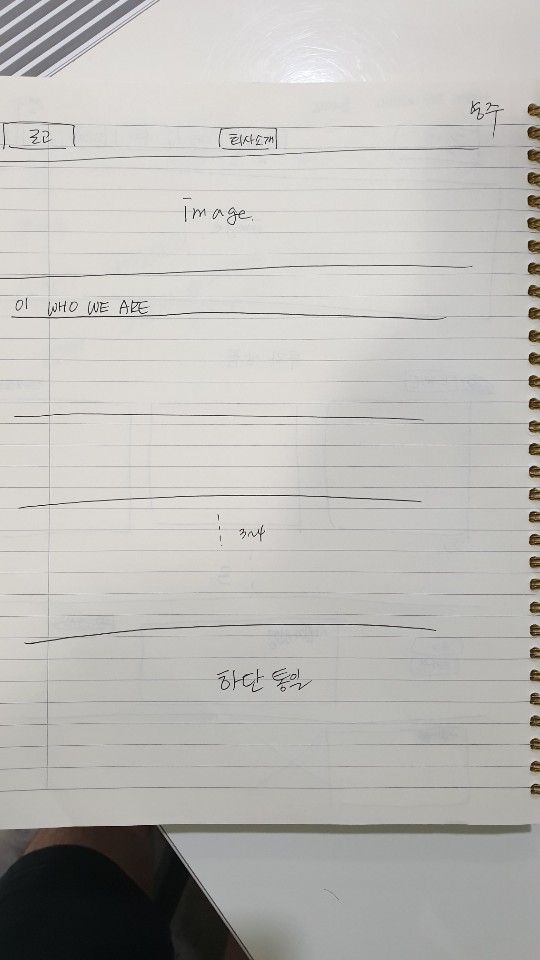 동주
로고 회사소개
image.
01 WHO WE ARE
3~4
하단 통일